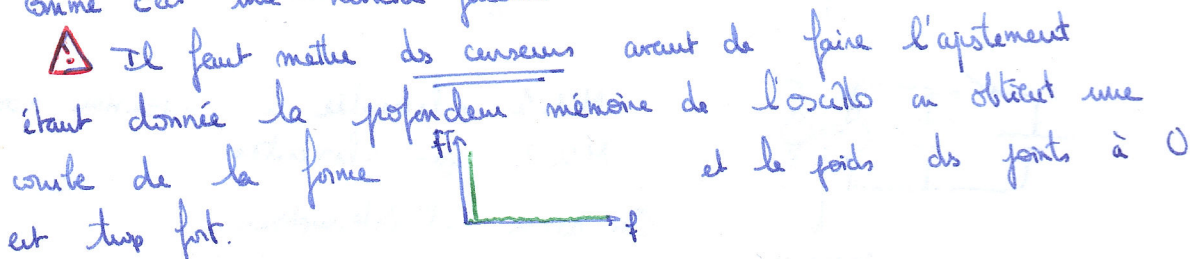 comme c'est une
Il faut mettre des curseurs avant de faire l'ajustement
étant donnée la profondeur mémoire de l'oscillo on obtient une
courbe de la forme FT f et le poids des points à 0
est trop fort.